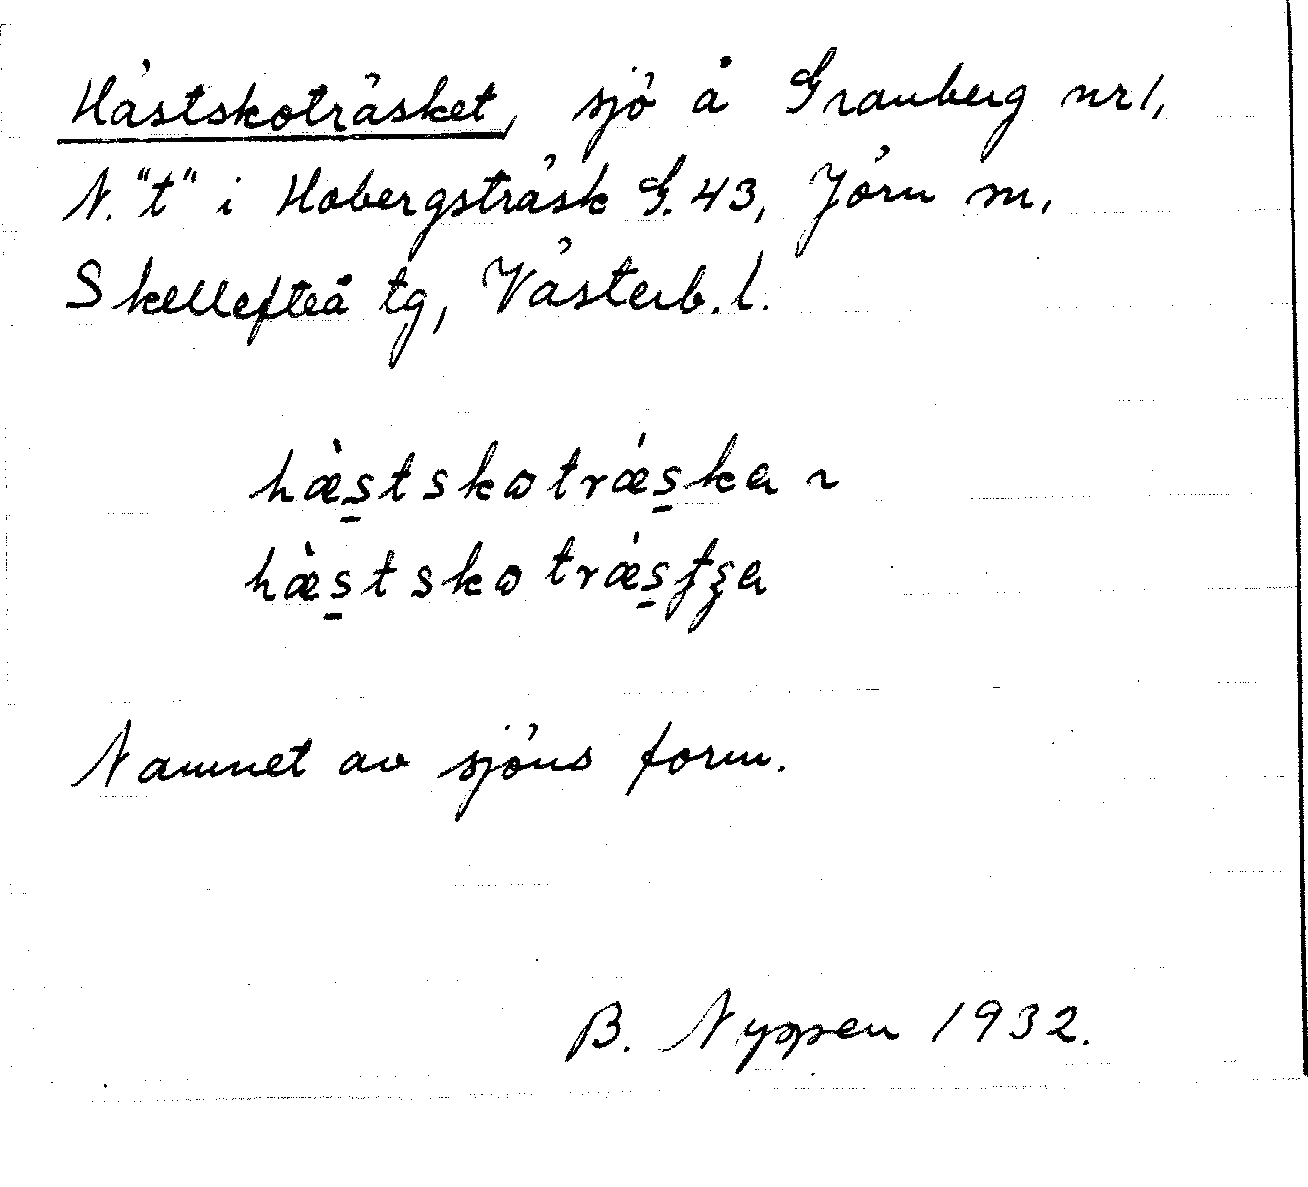 Hästskoträsket, sjö å Granberg nr 1,
N. "t" i Hobergsträsk G. 43, Jörn sn,
Skellefteå tg, Västerb. l.
hæ̀s̠tskotrǽs̠ka ~
hæ̀s̠tskotrǽs̠ʈʂa
Namnet av sjöns form.
B. Nyppen 1932.